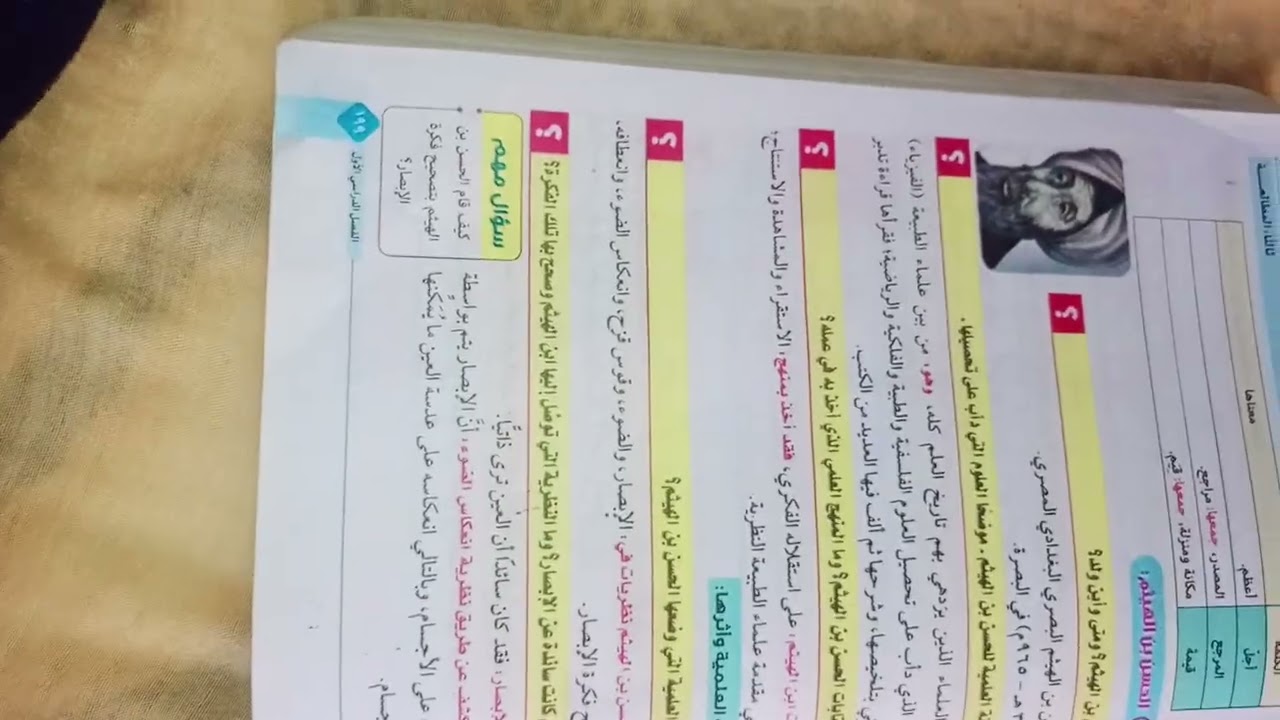 ثالثًا: المطالعة
معناها
أجلّ أعظم.
المرجع المصادر، جمعها: مراجع.
قيمة مكانة ومنزلة، جمعها: قيم.
الحسن بن الهيثم:
بن الهيثم؟ ومتى وأين ولد؟ ؟
بن الهيثم البصري البغدادي المصري.
هـ - ٩٦٥م) في البصرة.
العلمية للحسن بن الهيثم، موضحًا العلوم التي دأب على تحصيلها. ؟
العلماء الذين يزدهي بهم تاريخ العلم كله، وهو: من بين علماء الطبيعة (الفيزياء)
الذي دأب على تحصيل العلوم الفلسفية والطبية والفلكية والرياضية؛ فقرأها قراءة تدبر
بتلخيصها، وشرحها ثم ألف فيها العديد من الكتب.
الحسن بن الهيثم؟ وما المنهج العلمي الذي أخذ به في عمله؟ ؟
ابن الهيثم: على استقلاله الفكري، فقد أخذ بمنهج: الاستقراء والمشاهدة والاستنتاج؛
مقدمة علماء الطبيعة النظرية.
العلمية وأثرها:
العلمية التي وضعها الحسن بن الهيثم؟ ؟
بن الهيثم نظريات في: الإبصار، والضوء، وقوس قزح، وانعكاس الضوء، وانعطافه،
فكرة الإبصار.
كانت سائدة عن الإبصار؟ وما النظرية التي توصّل إليها ابن الهيثم وصحح بها تلك الفكرة؟ ؟
فقد كان سائدًا أن العين ترى ذاتيًا.
عن طريق نظرية انعكاس الضوء: أنّ الإبصار يتم بواسطة
على الأجسام، وبالتالي انعكاسه على عدسة العين ما يُمَكنها
سؤال مهم
كيف قام الحسن بن
الهيثم بتصحيح فكرة
الإبصار؟
الفصل الدراسي الأول ١٩٩